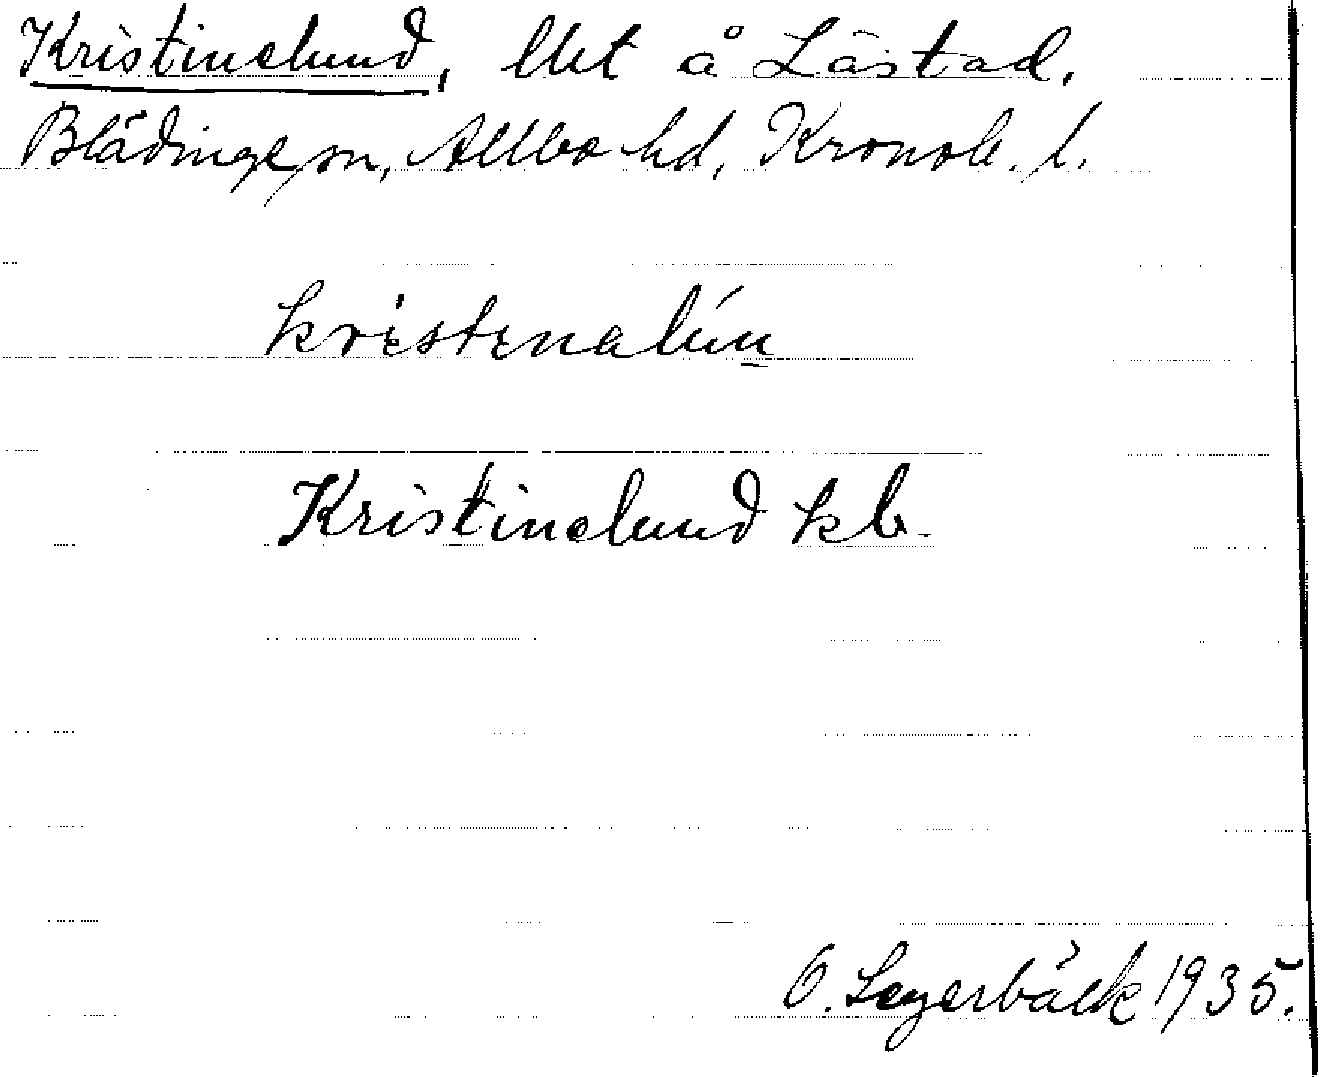 Kristinelund, lht å Låstad,
Blädinge sn, Allbo hd, Kronob. l.
kristinalún
Kristinelund kb.
O. Lagerbäck 1935.